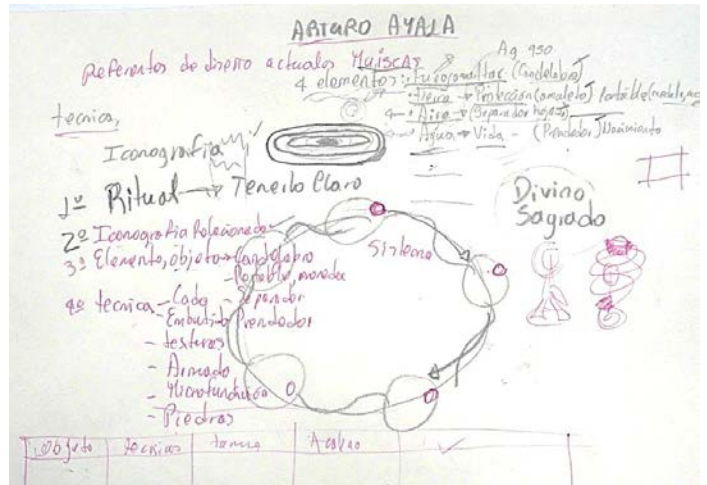 ARTURO AYALA
Referentes de diseño actuales Muiscas
Ag 950
4 elementos: Fuego (Candelabro)
Tierra → Protección (amuleto) Portable
Aire → (Separador hojas)
Agua → Vida - (Prendedor) Nacimiento
tecnica,
Iconografia
1º Ritual → Tenerlo Claro
Divino
Sagrado
2º Iconografia Relacionada
3º Elemento, objeto → Candelabro
- Portable, moneda
Sistema
4º tecnica - - Separador
- Embutido Prendedor
- texturas
- Armado
- Microfundición
- Piedras
Objeto tecnicas